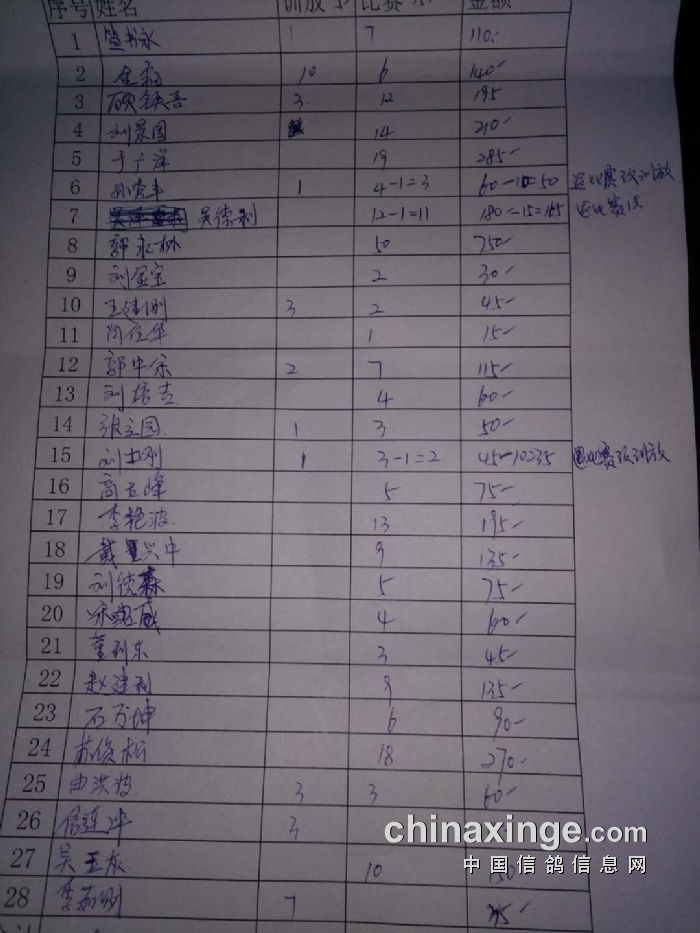 序号 姓名 训放 比赛 金额
1 永 1 7 110-
2 金 10 6 140-
3 3 12 195
4 刘景国 14 210-
5 于广洋 19 285-
6 1 4-1=3 60-10=50 退比赛改训放
7 吴德利 12-1=11 180-15=165 退比赛
8 郭永林 50 750-
9 刘金宝 2 30-
10 王建刚 3 2 45-
11 尚 华 1 15-
12 郭中余 2 7 115-
13 刘培吉 4 60-
14 张立国 1 3 50-
15 刘 刚 1 3-1=2 45-10=35 退比赛改训放
16 高玉峰 5 75-
17 李艳波 13 195-
18 戴 兴中 9 135-
19 刘德森 5 75-
20 威 4 60-
21 董利东 3 45-
22 赵建利 9 135-
23 石万坤 6 90-
24 苏俊松 18 270-
25 曲洪波 3 3 60-
26 信连 3
chinaxinge.com
中国信鸽信息网
27 吴玉 10 150
28 李 刚 7